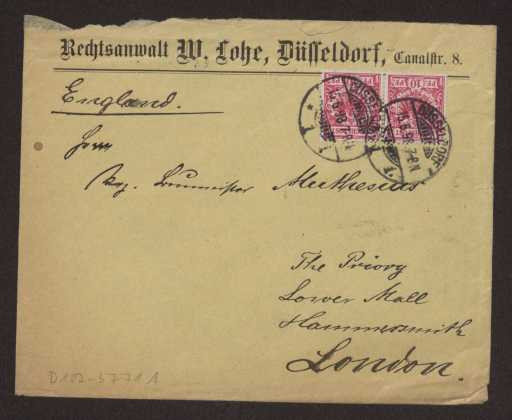 Rechtsanwalt W. Lohe, Düsseldorf, Canalstr. 8.
England.
Herrn
Kgz. Baumeister Muthesius
The Priory
Lower Mall
Hammersmith
London.
D102-3771 1